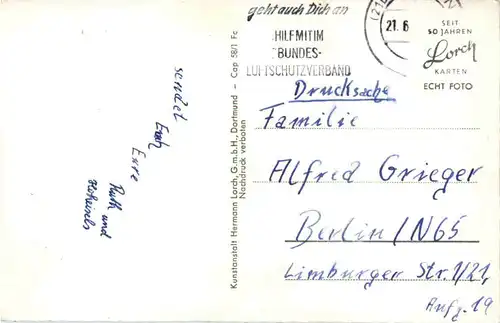 geht auch Dich an
HILF MIT IM
BUNDES-
LUFTSCHUTZVERBAND
(21
21. 6
SEIT
50 JAHREN
Lorch
KARTEN
ECHT FOTO
Drucksache
Familie
Alfred Grieger
Berlin/N65
Limburger Str. 1/21,
Aufg. 19
Kunstanstalt Hermann Lorch, G.m.b.H., Dortmund — Cap 58/1 Fc
Nachdruck verboten
sendet
Euch
Eure
Ruth und